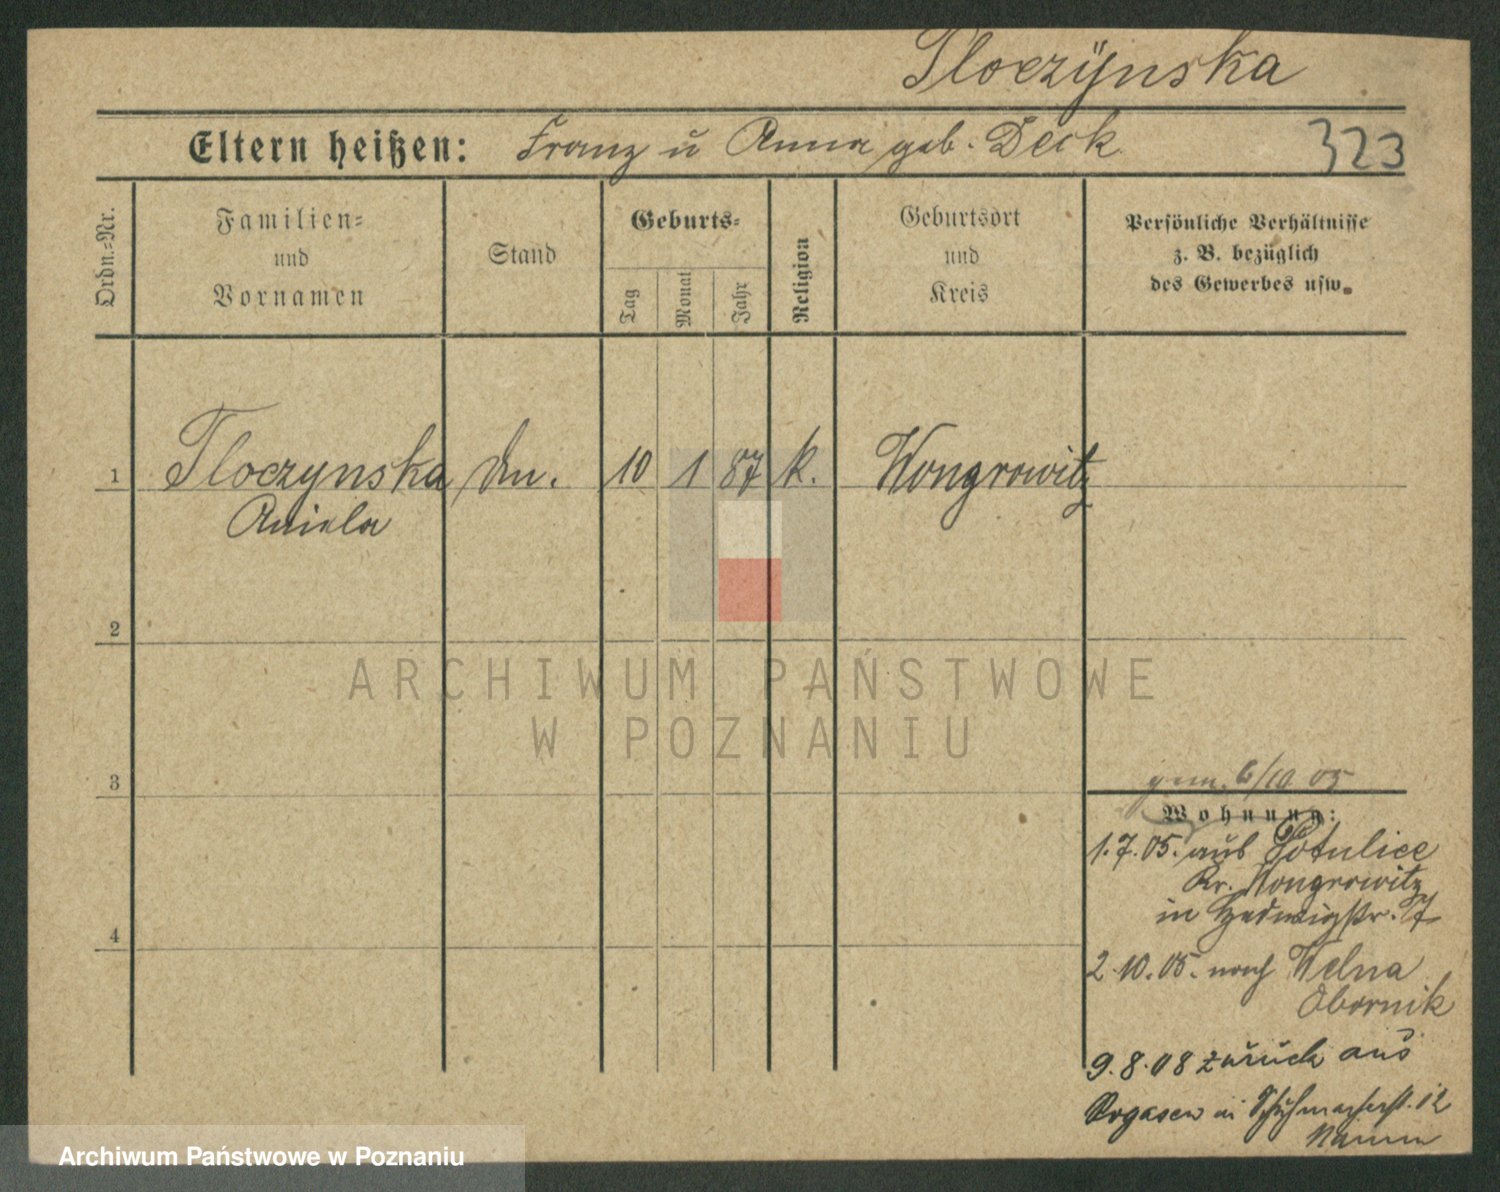 Tloczÿnska
Eltern heißen: Franz u Anna geb. Deck
323
Ordn.-Nr.
Familien-
und
Vornamen
Stand
Geburts-
Tag
Monat
Jahr
Religion
Geburtsort
und
Kreis
Persönliche Verhältnisse
z. B. bezüglich
des Gewerbes usw.
1 Tloczynska 10 1 87 k. Wongrowitz
Aniela
2
3
4
gem. 6/10 05
Wohnung:
1.7.05. aus Potulice
Kr. Wongrowitz
in Hedwigstr. 7
2.10.05. nach Welna
Obornik
9.8.08 zurück aus
Rogasen in Schuhmacherst. 12
ARCHIWUM PAŃSTWOWE
W POZNANIU
Archiwum Państwowe w Poznaniu